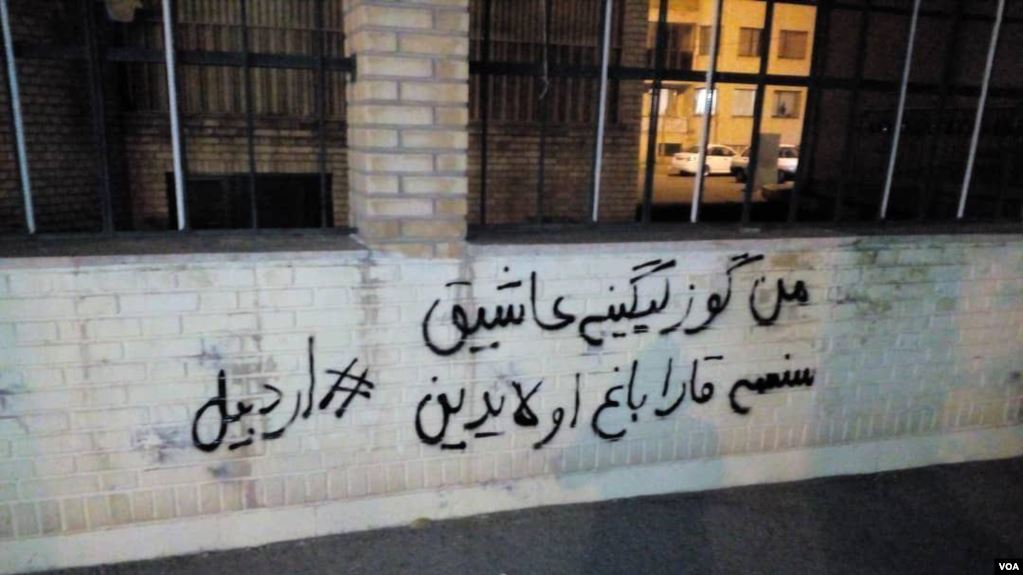 من گوزلیگینه عاشیق
سنسه قاراباغ اولایدین #اردبیل
VOA